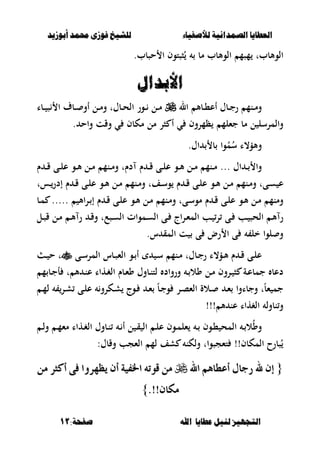 العطايا الصمدانية للأصفياء للشيخ فوزى محمد أبوزيد
الوهاب، يهبهم الوهاب ما به يُثبتون الأحباب.
الأبدال
ومنهم رجال أعطاهم الله ﷺ من نور الحال، ومن أوصاف الأنبياء
والمرسلين ما جعلهم يظهرون في أكثر من مكان في وقت واحد.
وهؤلاء سُمُّوا بالأبدال.
والأبدال ... منهم من هو على قدم آدم، ومنهم من هو على قدم
عيسى، ومنهم من هو على قدم يوسف، ومنهم من هو على قدم إدريس،
ومنهم من هو على قدم موسى، ومنهم من هو على قدم إبراهيم .....كما
رآهم الحبيب فى ترتيب المعراج فى السموات السبع، وقد رآهم من قبل
وصلوا خلفه فى الأرض فى بيت المقدس.
على قدم هؤلاء رجال، منهم سيدى أبو العباس المرسى ، حيث
دعاه جماعة كثيرون من طلابه ورواده لتناول طعام الغذاء عندهم، فأجابهم
جميعاً، وجاءوا بعد صلاة العصر فوجاً بعد فوج يشكرونه على تشريفه لهم
وتناوله الغذاء عندهم!!!
وطُلابه المحيطون به يعلمون علم اليقين أنه تناول الغذاء معهم ولم
يُبارح المكان!! فتعجبوا، ولكنه كشف لهم العجب وقال:
{ إن لله رجال أعطاهم الله من قوته الخفية أن يظهروا فى أكثر من
مكان!!.}
التجهيز لنيل عطايا الله صفحة:١٢